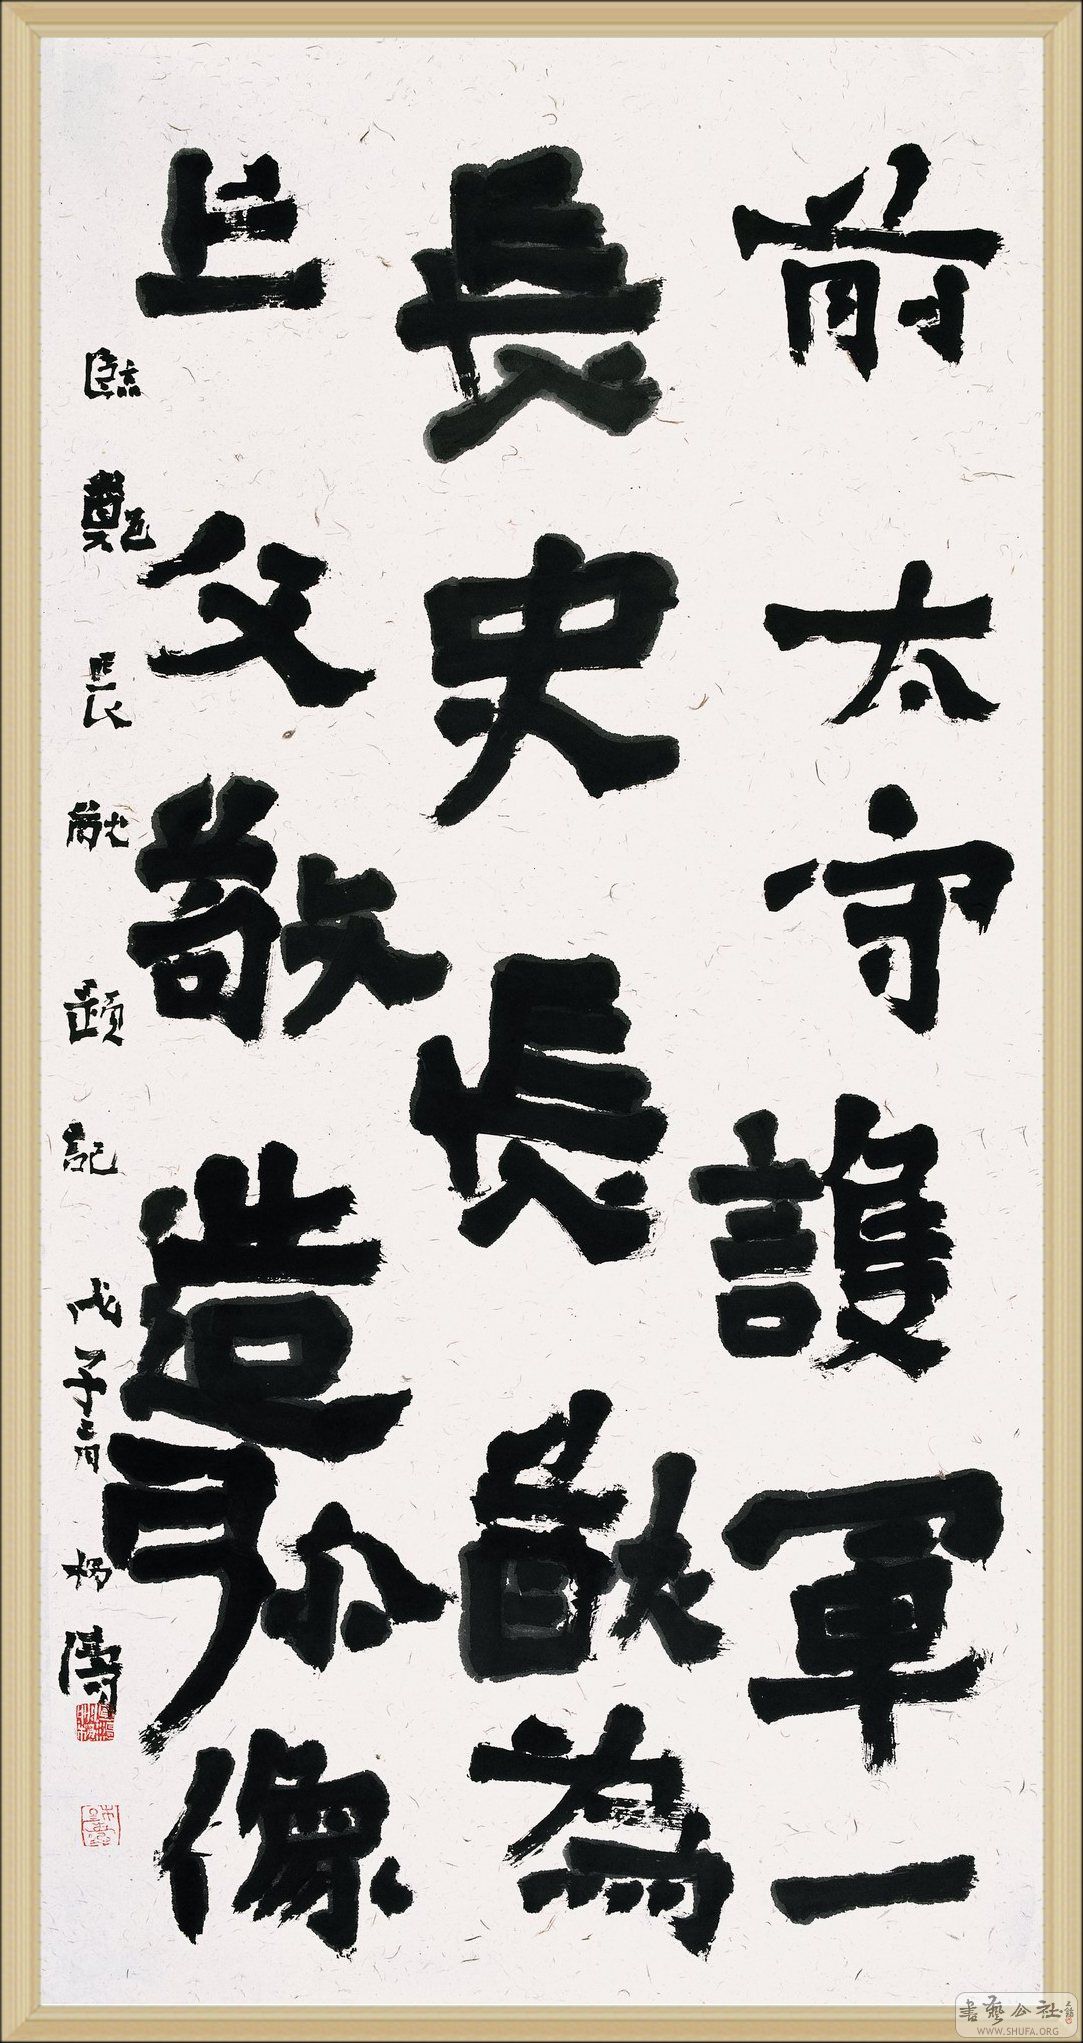 前太守護軍一
長史長猷為
亡父敬造弥像
臨鄭長猷題記 戊子 楊濤
書藝公社
WWW.SHUFA.ORG